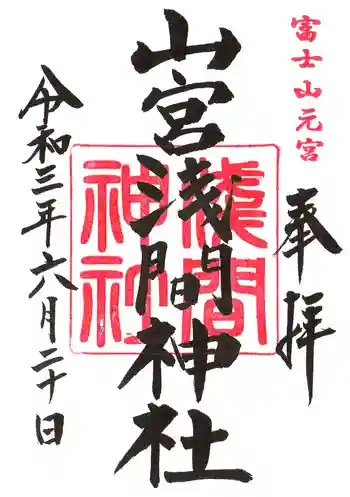 富士山元宮
奉拝
山宮浅間神社
浅間神社
令和三年六月二十日